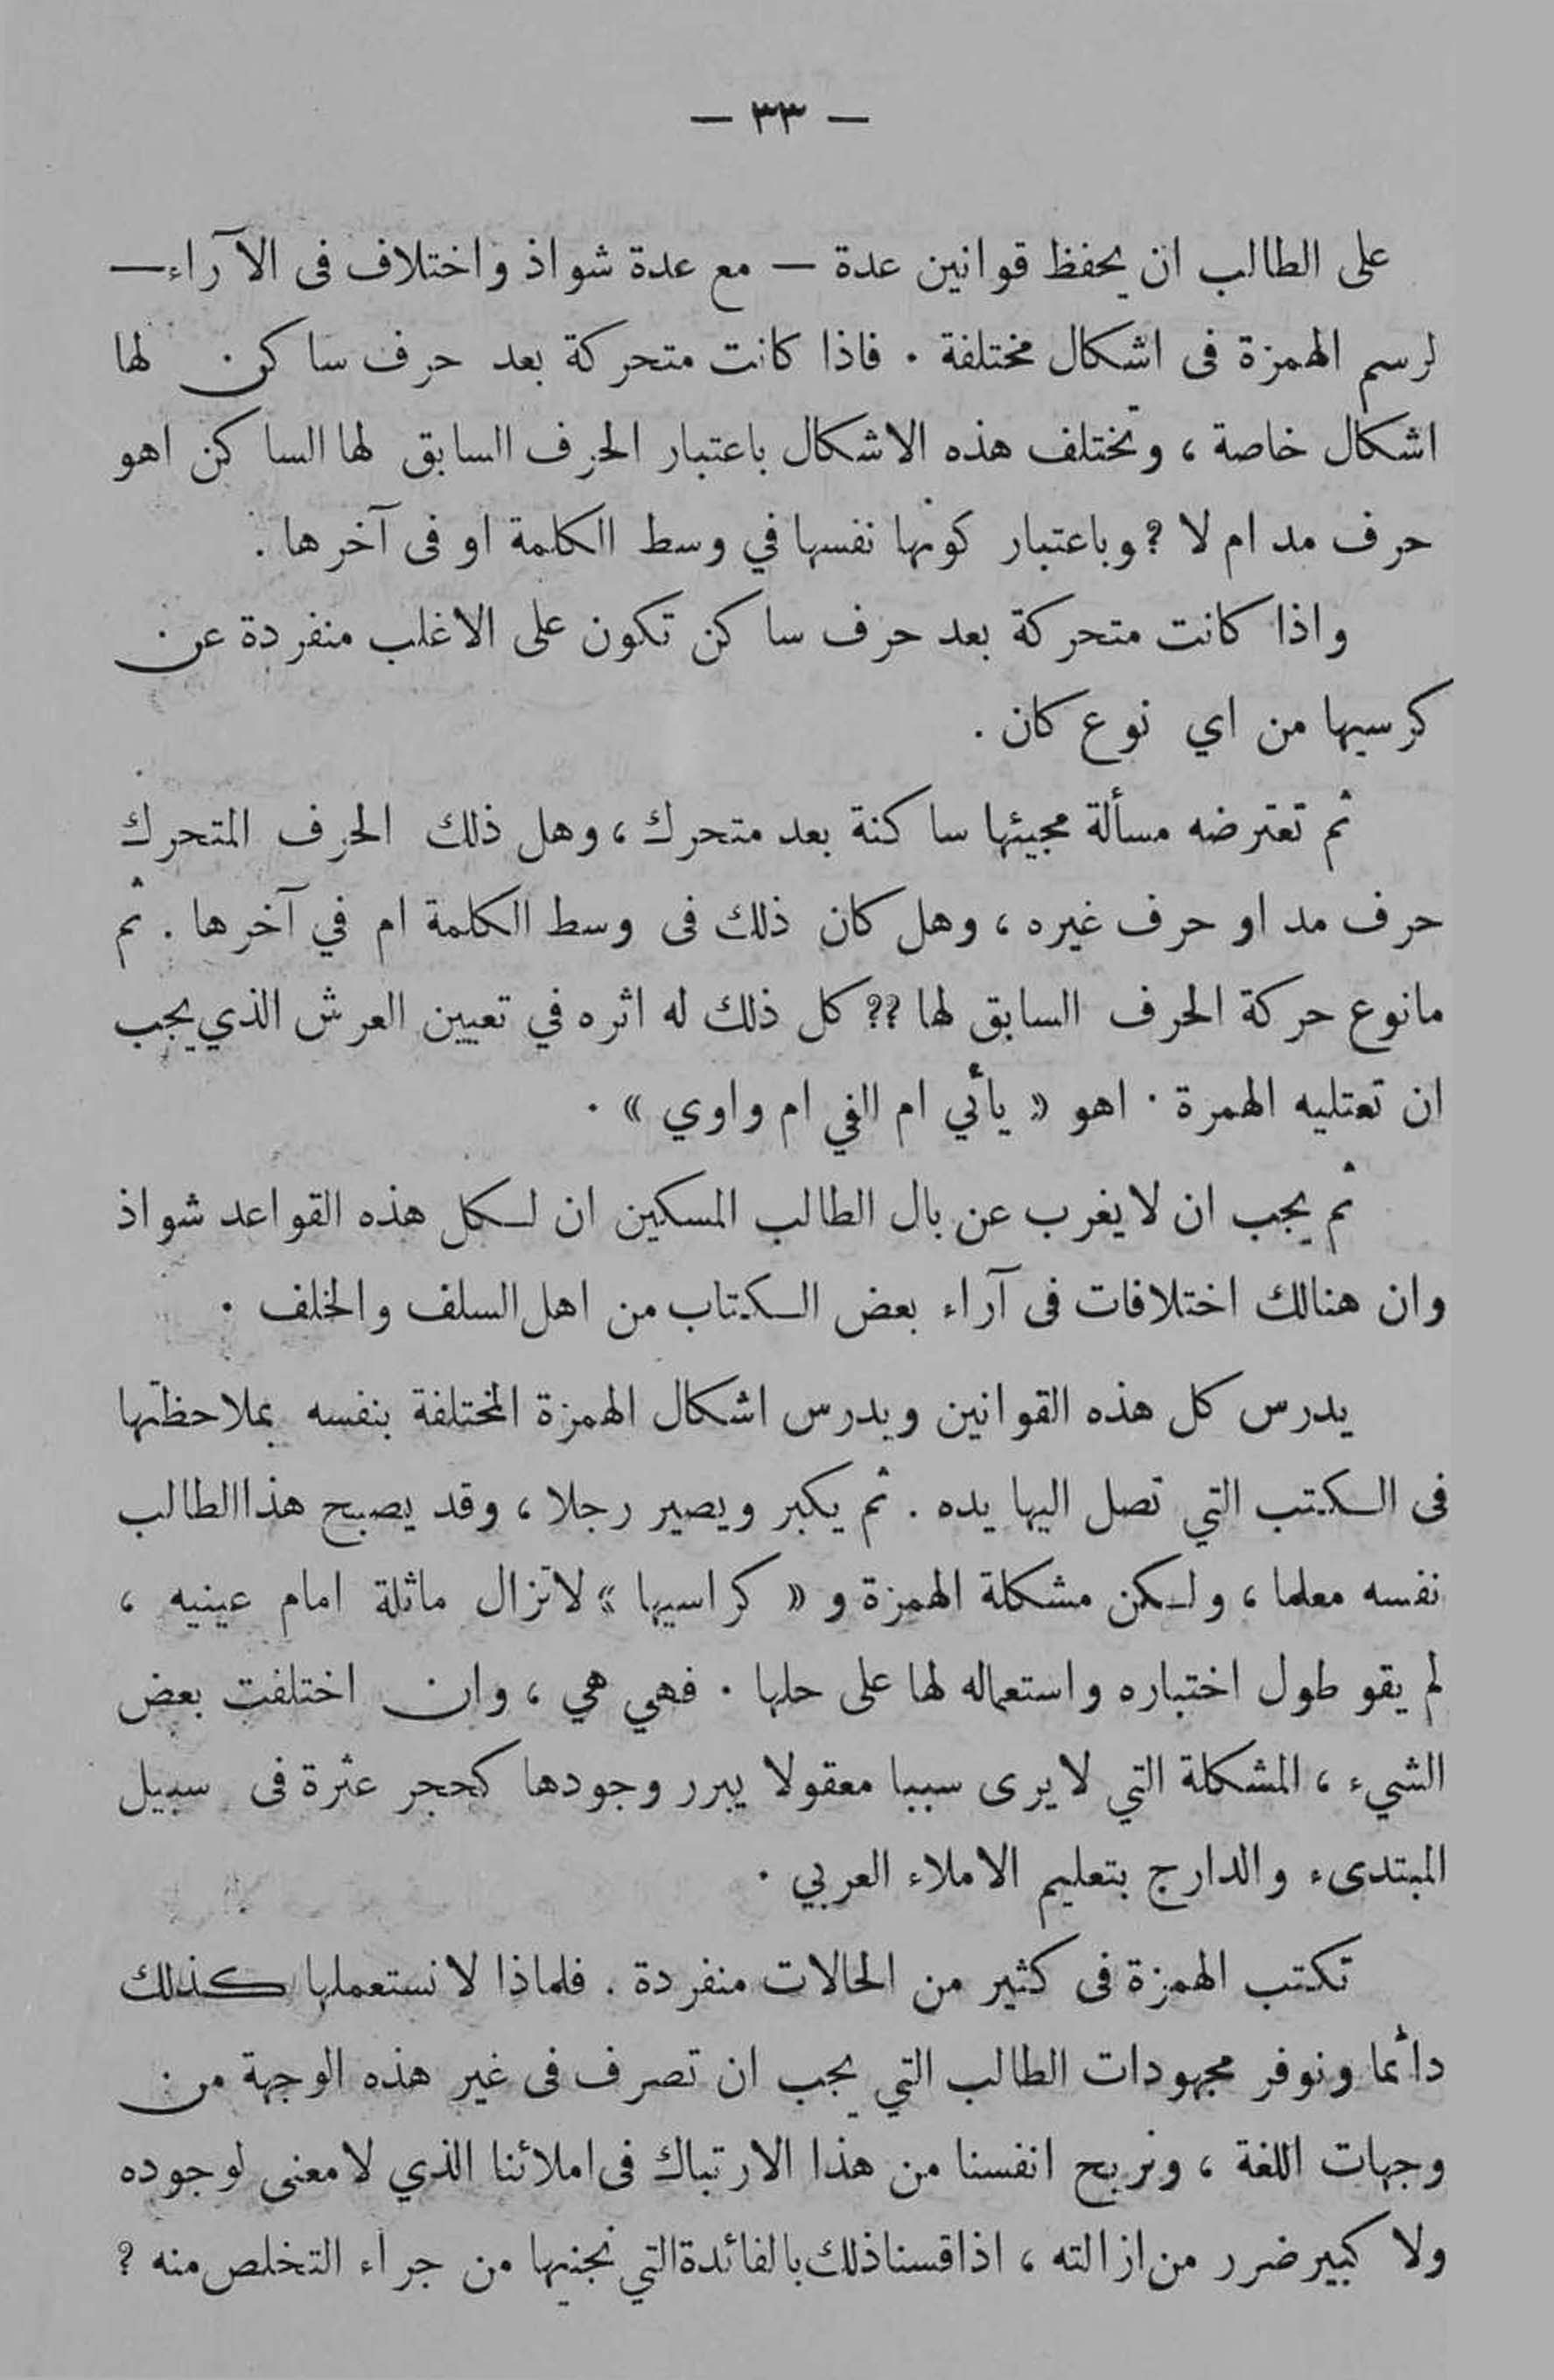 — ٣٣ —
على الطالب ان يحفظ قوانين عدة — مع عدة شواذ واختلاف فى الآراء —
لرسم الهمزة فى اشكال مختلفة . فاذا كانت متحركة بعد حرف ساكن لها
اشكال خاصة ، وتختلف هذه الاشكال باعتبار الحرف السابق لها الساكن اهو
حرف مد ام لا ? وباعتبار كونها نفسها في وسط الكلمة او فى آخرها .
واذا كانت متحركة بعد حرف ساكن تكون على الاغلب منفردة عن
كرسيها من اي نوع كان .
ثم تعترضه مسألة مجيئها ساكنة بعد متحرك ، وهل ذلك الحرف المتحرك
حرف مد او حرف غيره ، وهل كان ذلك فى وسط الكلمة ام في آخرها . ثم
مانوع حركة الحرف السابق لها ?? كل ذلك له اثره في تعيين العرش الذي يجب
ان تعتليه الهمرة . اهو « يأئي ام الفي ام واوي » .
ثم يجب ان لا يغرب عن بال الطالب المسكين ان لكل هذه القواعد شواذ
وان هنالك اختلافات فى آراء بعض الكتاب من اهل السلف والخلف .
يدرس كل هذه القوانين ويدرس اشكال الهمزة المختلفة بنفسه بملاحظتها
فى الكتب التي تصل اليها يده . ثم يكبر ويصير رجلا ، وقد يصبح هذا الطالب
نفسه معلما ، ولكن مشكلة الهمزة و « كراسيها » لا تزال ماثلة امام عينيه ،
لم يقو طول اختباره واستعماله لها على حلها . فهي هي ، وان اختلفت بعض
الشيء ، المشكلة التي لا يرى سببا معقولا يبرر وجودها كحجر عثرة فى سبيل
المبتدىء والدارج بتعليم الاملاء العربي .
تكتب الهمزة فى كثير من الحالات منفردة . فلماذا لا نستعملها كذلك
دائما ونوفر مجهودات الطالب التي يجب ان تصرف فى غير هذه الوجهة من
وجهات اللغة ، ونريح انفسنا من هذا الارتباك فى املائنا الذي لا معنى لوجوده
ولا كبير ضرر من ازالته ، اذا قسنا ذلك بالفائدة التي نجنيها من جراء التخلص منه ?